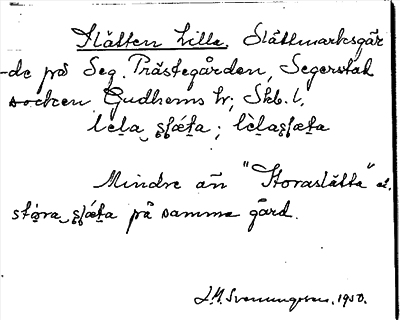 Slätten Lilla. Slättmarksgär
-de på Seg. Prästegården, Segerstad
socken, Gudhems hr; Skb. l.
lela slæta; lelaslæta
Mindre än "Storaslätta" el.
stora slæta på samma gård.
J. M. Svenungsson. 1950.